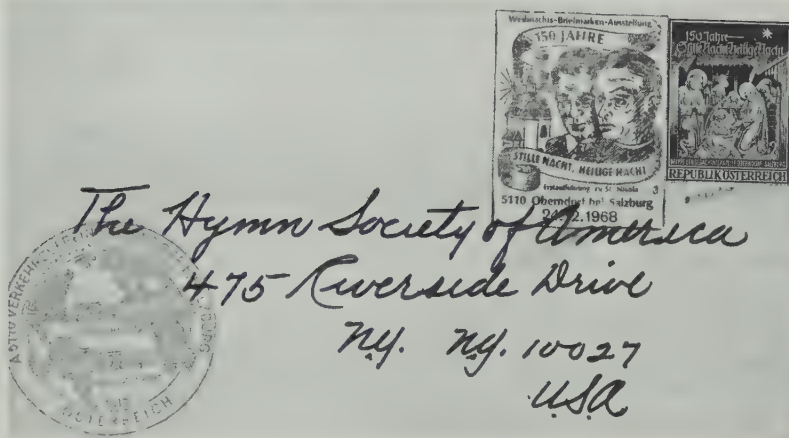 Weihnachts-Briefmarken-Ausstellung
150 JAHRE
STILLE NACHT, HEILIGE NACHT
Erstaufführung zu St. Nikola
5110 Oberndorf bei Salzburg
24.12.1968
150 Jahre
Stille Nacht Heilige Nacht
REPUBLIK ÖSTERREICH
The Hymn Society of America
475 Riverside Drive
N.Y. N.Y. 10027
U.S.A
A-5110 VERKEHRS
ÖSTERREICH